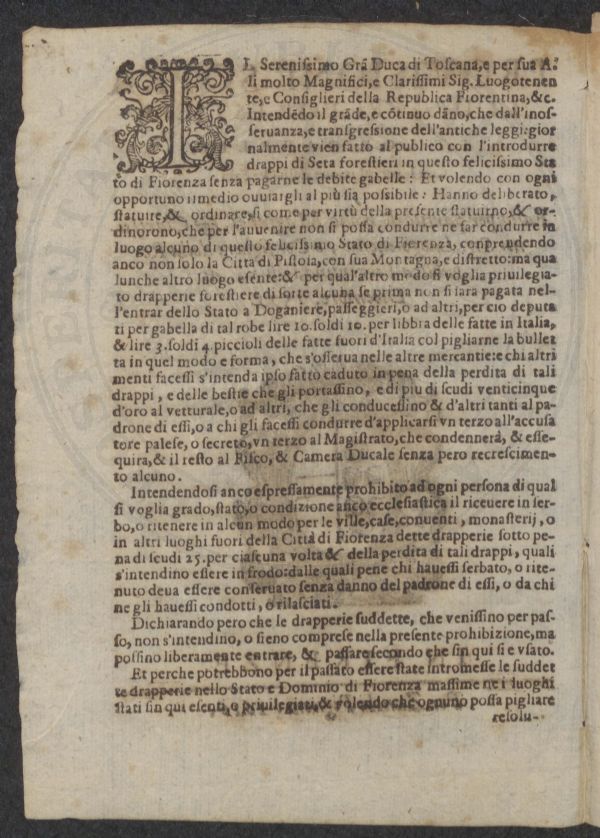 IL Serenissimo Grã Duca di Toscana, e per sua A.
li molto Magnifici, e Clarissimi Sig. Luogotenen
te, e Consiglieri della Republica Fiorentina, &c.
Intendẽdo il grãde, e cõtinuo dãno, che dall'inos-
seruanza, e transgressione dell'antiche leggi: gior
nalmente vien fatto al publico con l'introdurre
drappi di Seta forestieri in questo felicissimo Sta
to di Fiorenza senza pagarne le debite gabelle: Et volendo con ogni
opportuno rimedio ouuiargli al più sia possibile: Hanno deliberato,
statuire, & ordinare, si come per virtù della presente statuirno, & or-
dinorono, che per l'auuenire non si possa condurre ne far condurre in
luogo alcuno di questo felicissimo Stato di Fiorenza, conprendendo
anco non solo la Città di Pistoia, con sua Montagna, e distretto: ma qua
lunche altro luogo esente: & per qual'altro modo si voglia priuilegia-
to drapperie forestiere di sorte alcuna se prima non si sarà pagata nel-
l'entrar dello Stato a Doganiere, passeggieri, o ad altri, per ciò deputa
ti per gabella di tal robe lire 10. soldi 10. per libbra delle fatte in Italia,
& lire 3. soldi 4 piccioli delle fatte fuori d'Italia col pigliarne la bullet
ta in quel modo e forma, che s'osserua nelle altre mercantie: e chi altri
menti facessi s'intenda ipso fatto caduto in pena della perdita di tali
drappi, e delle bestie che gli portassino, e di più di scudi venticinque
d'oro al vetturale, o ad altri, che gli conducessino & d'altri tanti al pa-
drone di essi, o a chi gli facessi condurre d'applicarsi vn terzo all'accusa
tore palese, o secreto, vn terzo al Magistrato, che condennerà, & esse-
quirà, & il resto al Fisco, & Camera Ducale senza pero recrescimen-
to alcuno.
Intendendosi anco espressamente prohibito ad ogni persona di qual
si voglia grado, stato, o condizione anco ecclesiastica il riceuere in ser-
bo, o ritenere in alcun modo per le ville, case, conuenti, monasterij, o
in altri luoghi fuori della Città di Fiorenza dette drapperie sotto pe-
na di scudi 25. per ciascuna volta & della perdita di tali drappi, quali
s'intendino essere in frodo: dalle quali pene chi hauessi serbato, o rite-
nuto deua essere conseruato senza danno del padrone di essi, o da chi
ne gli hauessi condotti, o rilasciati.
Dichiarando pero che le drapperie suddette, che venissino per pas-
so, non s'intendino, o sieno comprese nella presente prohibizione, ma
possino liberamente entrare, & passare secondo che sin qui si e vsato.
Et perche potrebbono per il passato essere state intromesse le suddet
te drapperie nello Stato e Dominio di Fiorenza massime ne i luoghi
stati sin qui esenti, o priuilegiati, & volendo che ognuno possa pigliare
resolu-